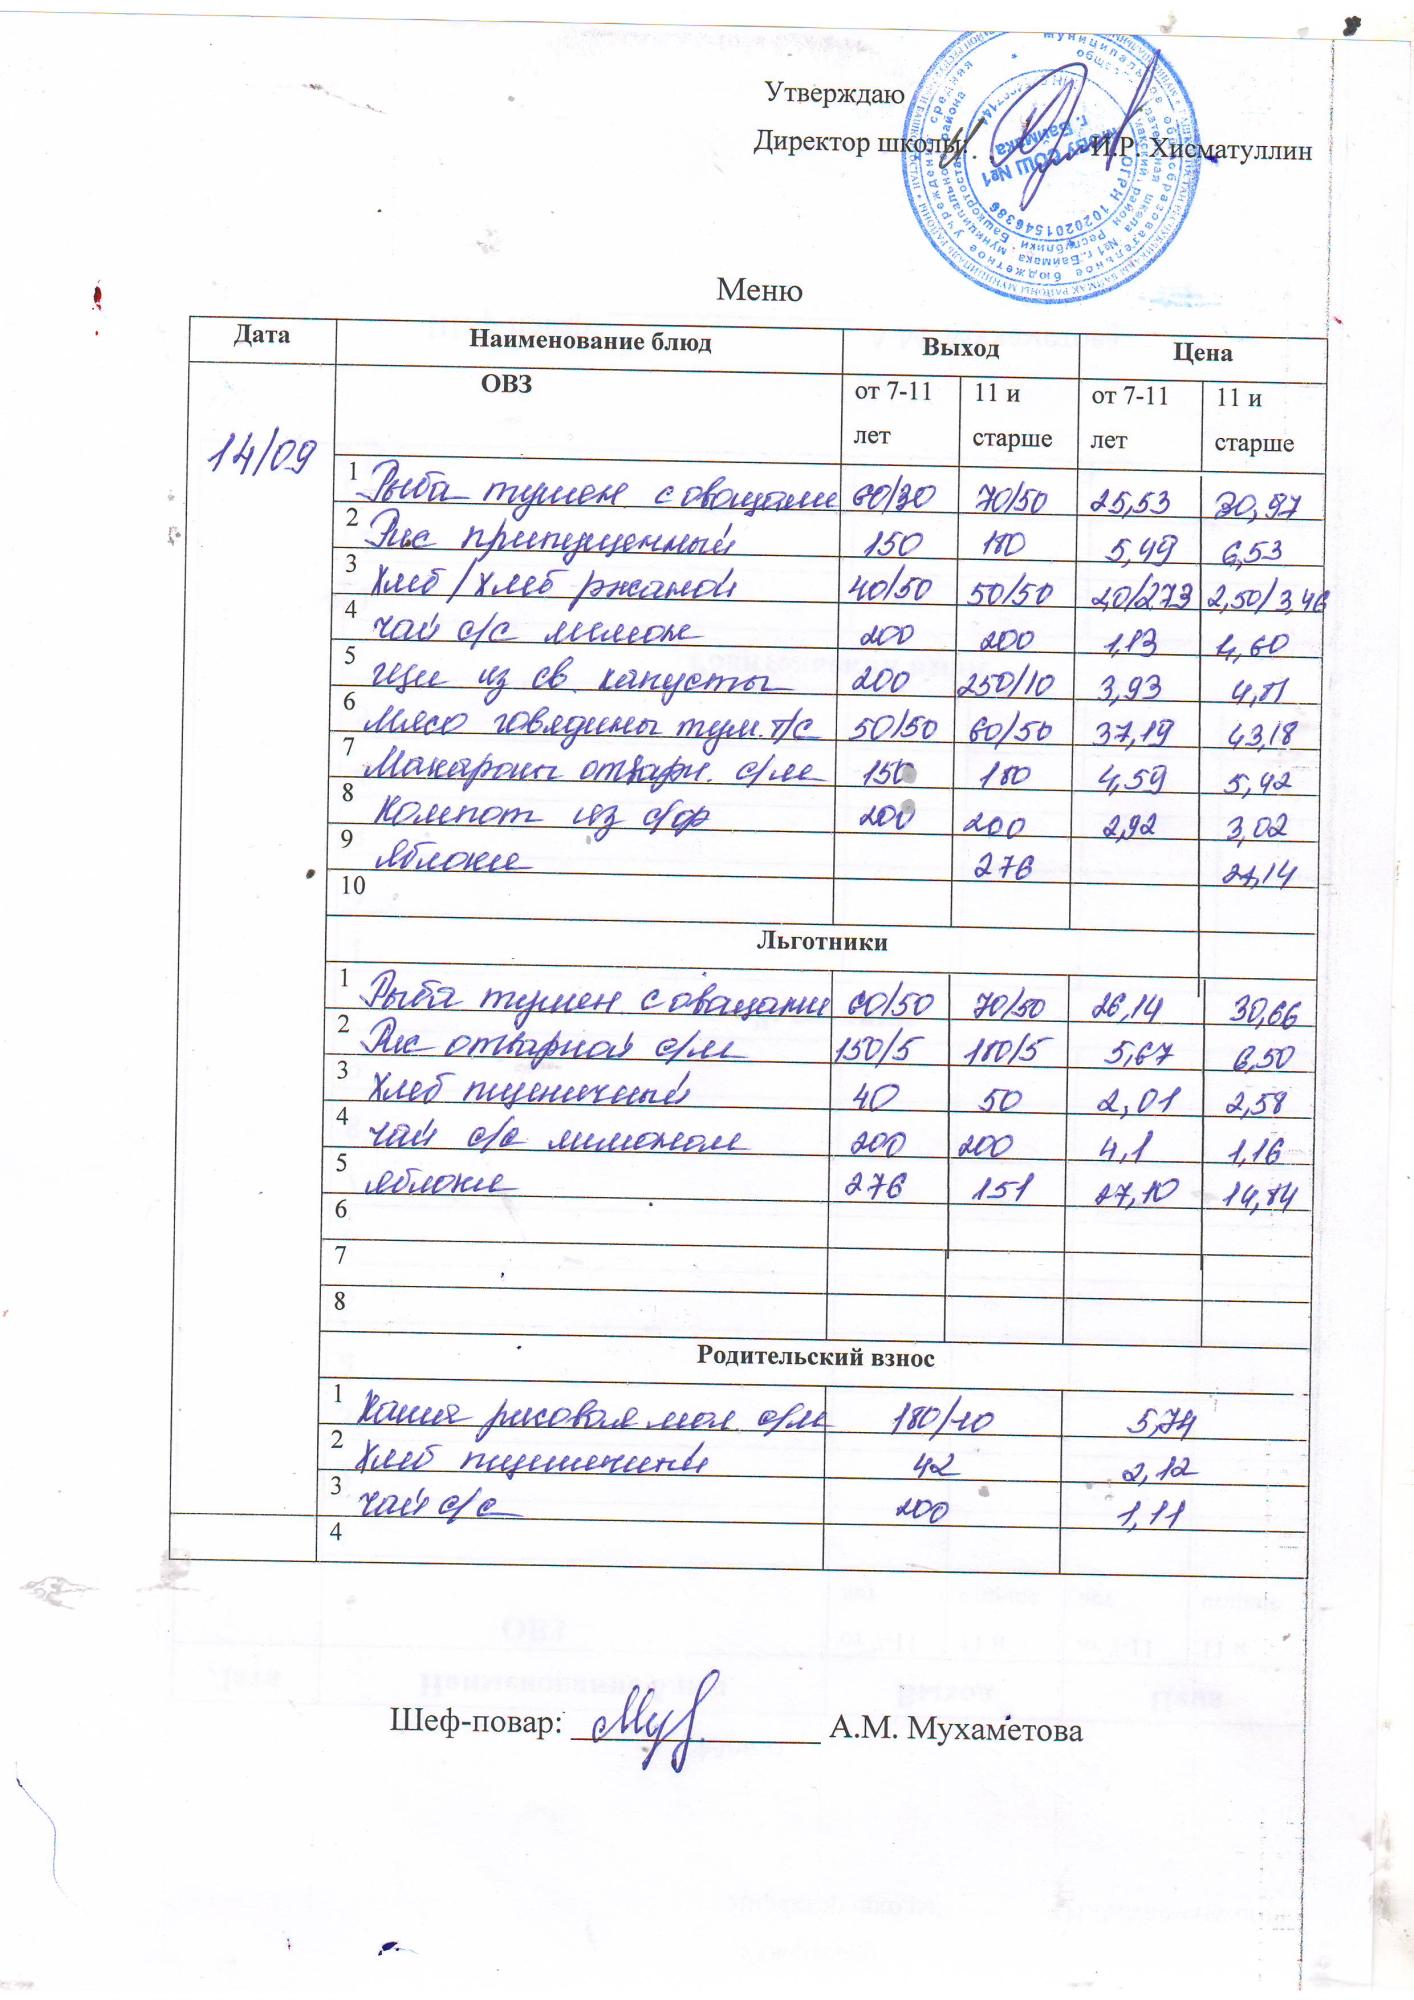 Утверждаю
Директор школы: И.Р. Хисматуллин
МОБУ СОШ №1
г. Баймака
ОГРН 1020201546386
Меню
Дата Наименование блюд Выход Цена
ОВЗ от 7-11 лет 11 и старше от 7-11 лет 11 и старше
14/09
1 Рыба тушен с овощами 60/30 70/50 25,53 30,97
2 Рис припущенный 150 180 5,49 6,53
3 Хлеб/хлеб ржаной 40/50 50/50 2,0/2,73 2,50/3,46
4 Чай с/с лимон 200 200 1,13 1,60
5 Щи из св. капусты 200 250/10 3,93 4,81
6 Мясо говядины туш. т/с 50/50 60/50 37,19 43,18
7 Макароны отварн. с/м 150 180 4,59 5,42
8 Компот из с/ф 200 200 2,92 3,02
9 яблоки 276 27,14
10
Льготники
1 Рыба тушен с овощами 60/50 70/50 26,14 30,66
2 Рис отварной с/м 150/5 180/5 5,67 6,50
3 Хлеб пшеничный 40 50 2,01 2,58
4 Чай с/с лимоном 200 200 4,1 1,16
5 яблоки 276 151 27,10 14,84
6
7
8
Родительский взнос
1 Каша рисовая мол. с/м 180/10 5,74
2 Хлеб пшеничный 42 2,12
3 Чай с/с 200 1,11
4
Шеф-повар: А.М. Мухаметова